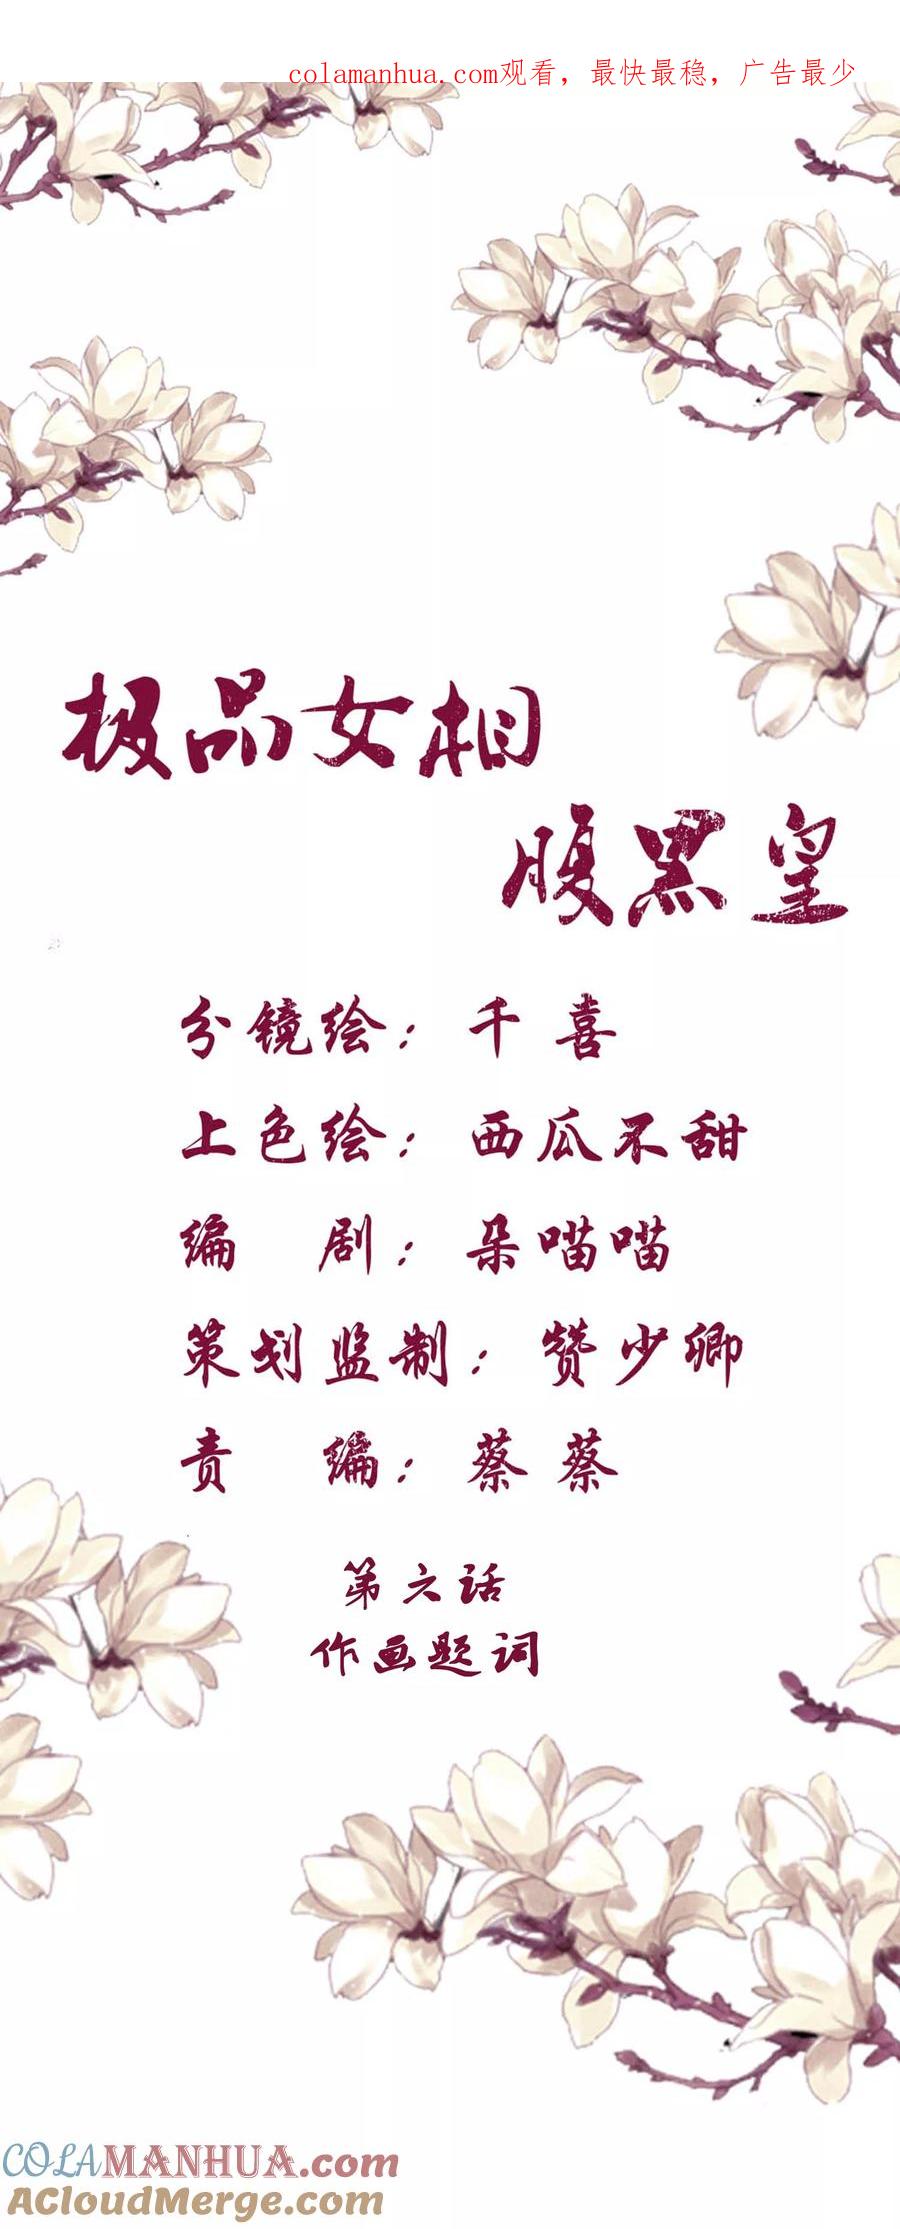 colamanhua.com观看，最快最稳，广告最少
极品女相
腹黑皇
分镜绘：千喜
上色绘：西瓜不甜
编剧：朵喵喵
策划监制：赞少卿
责编：蔡蔡
第六话
作画题词
COLAMANHUA.com
ACloudMerge.com